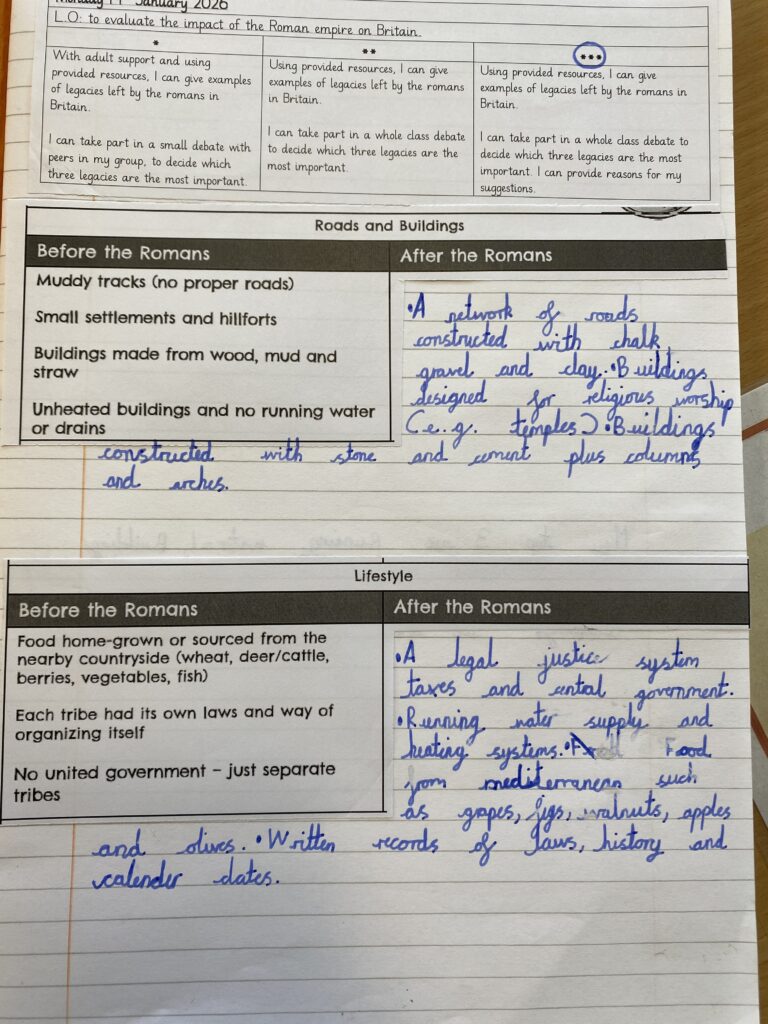 January 2026
L.O: to evaluate the impact of the Roman empire on Britain.
*
With adult support and using
provided resources, I can give
examples of legacies left by the romans in
Britain.
I can take part in a small debate with
peers in my group, to decide which
three legacies are the most important.
**
Using provided resources, I can give
examples of legacies left by the romans
in Britain.
I can take part in a whole class debate
to decide which three legacies are the
most important.
***
Using provided resources, I can give
examples of legacies left by the romans in
Britain.
I can take part in a whole class debate to
decide which three legacies are the most
important. I can provide reasons for my
suggestions.
Roads and Buildings
Before the Romans
Muddy tracks (no proper roads)
Small settlements and hillforts
Buildings made from wood, mud and
straw
Unheated buildings and no running water
or drains
After the Romans
•A network of roads
constructed with chalk,
gravel and clay. •Buildings
designed for religious worship
(e.g. temples) •Buildings
constructed with stone and cement plus columns
and arches.
Lifestyle
Before the Romans
Food home-grown or sourced from the
nearby countryside (wheat, deer/cattle,
berries, vegetables, fish)
Each tribe had its own laws and way of
organizing itself
No united government – just separate
tribes
After the Romans
•A legal justice system
taxes and central government.
•Running water supply and
heating systems. • Food
from mediterranean such
as grapes, figs, walnuts, apples
and olives. •Written records of laws, history and
calender dates.